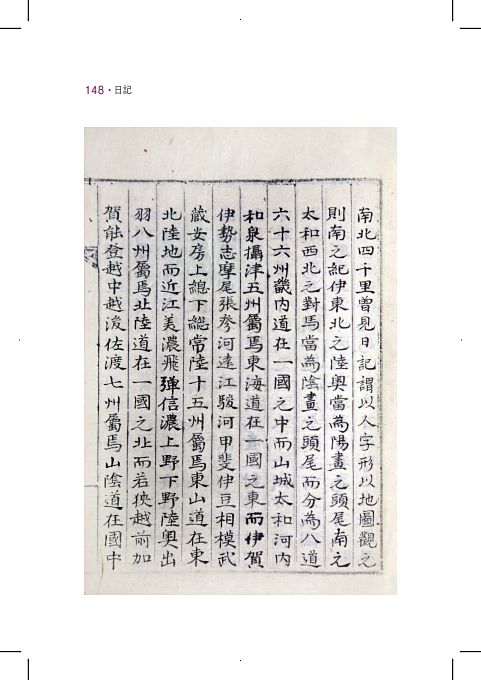 148 · 日記
南北四千里曾見日記謂以人字形以地圖觀之
則南之紀伊東北之陸奧當為陽畫之頭尾南之
太和西北之對馬當為陰畫之頭尾而分為八道
六十六州畿内道在一國之中而山城太和河内
和泉攝津五州屬焉東海道在一國之東而伊賀
伊勢志摩尾張參河遠江駿河甲斐伊豆相模武
蔵安房上總下総常陸十五州屬焉東山道在東
北陸地而近江美濃飛弾信濃上野下野陸奧出
羽八州屬焉北陸道在一國之北而若狹越前加
賀能登越中越後佐渡七州屬焉山陰道在國中